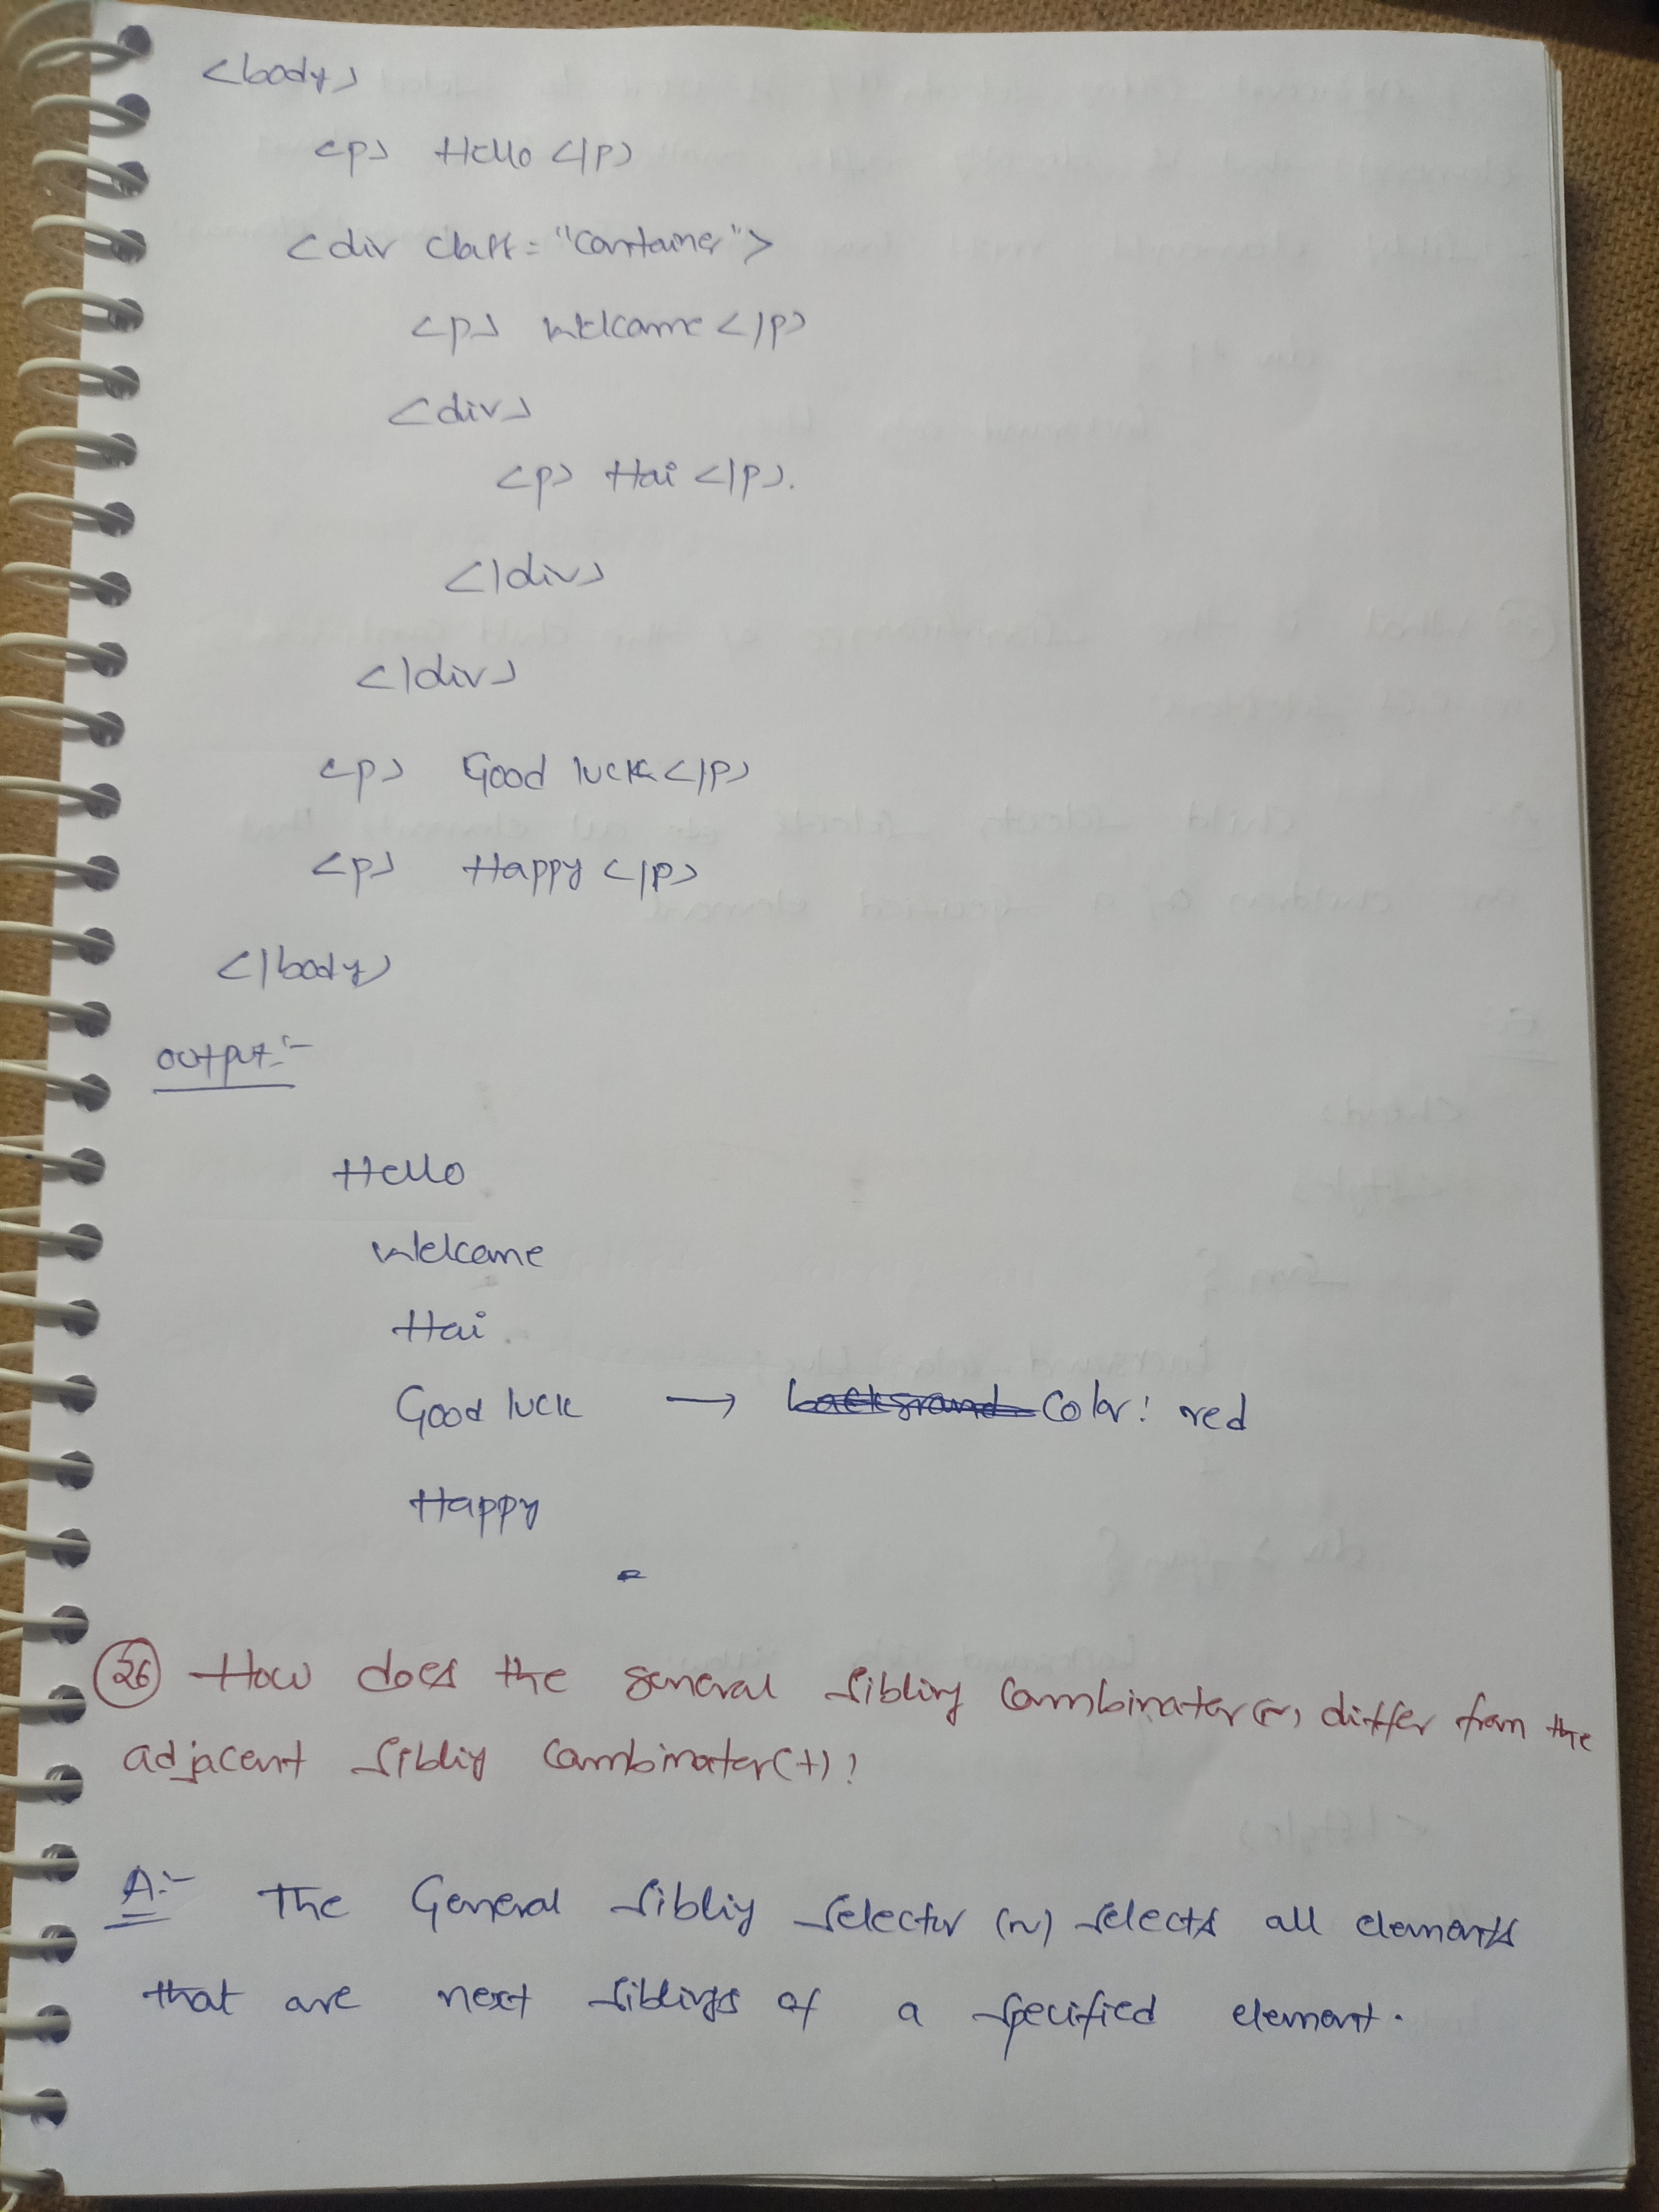 <body>
<p> Hello </p>
<div class="container">
<p> Welcome </p>
<div>
<p> Hai </p>.
</div>
</div>
<p> Good luck </p>
<p> Happy </p>
</body>
output:-
Hello
Welcome
Hai.
Good luck → background color: red
Happy
26 How does the general sibling combinator (~) differ from the
adjacent sibling combinator (+)?
A:- The General sibling selector (~) selects all elements
that are next siblings of a specified element.